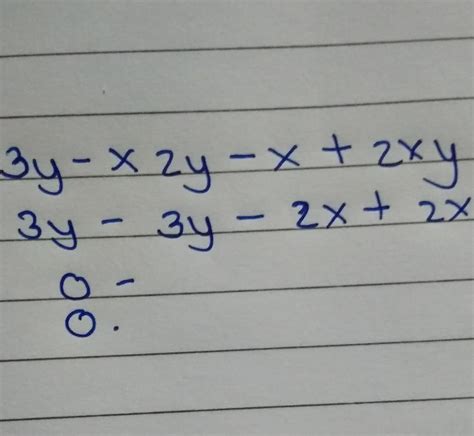 3y - x 2y - x + 2xy
3y - 3y - 2x + 2x
0 -
0.